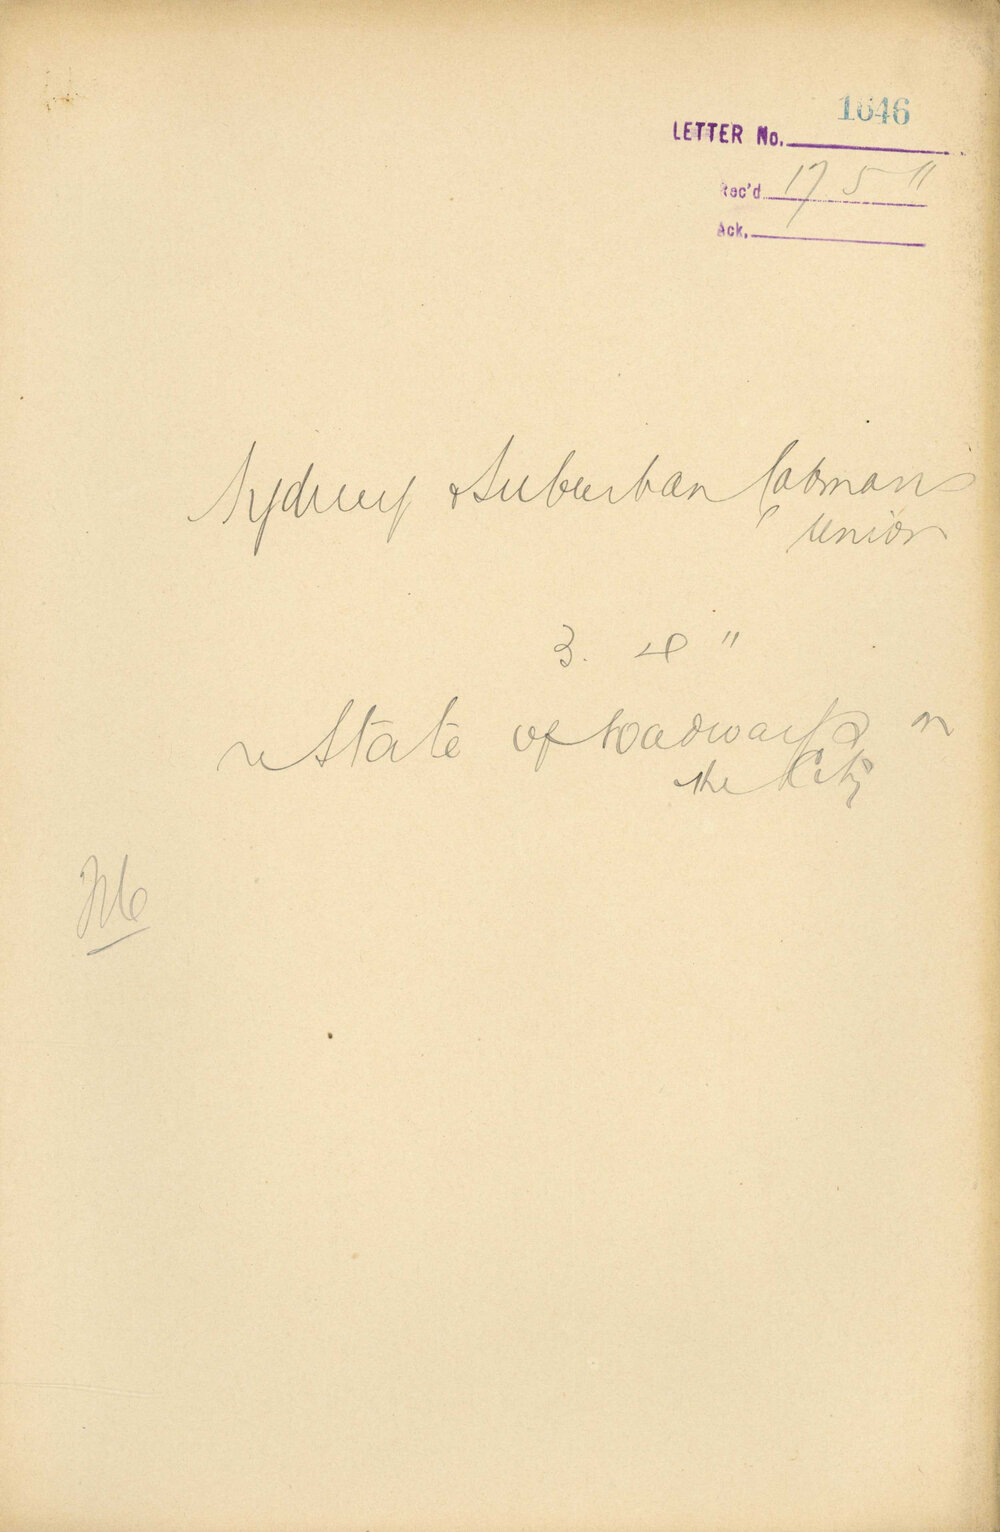 1646
LETTER No.
Rec'd 17 5 11
Ack.
Sydney & Suburban Cabmans
Union
3. 4 "
re State of roadways in
the City